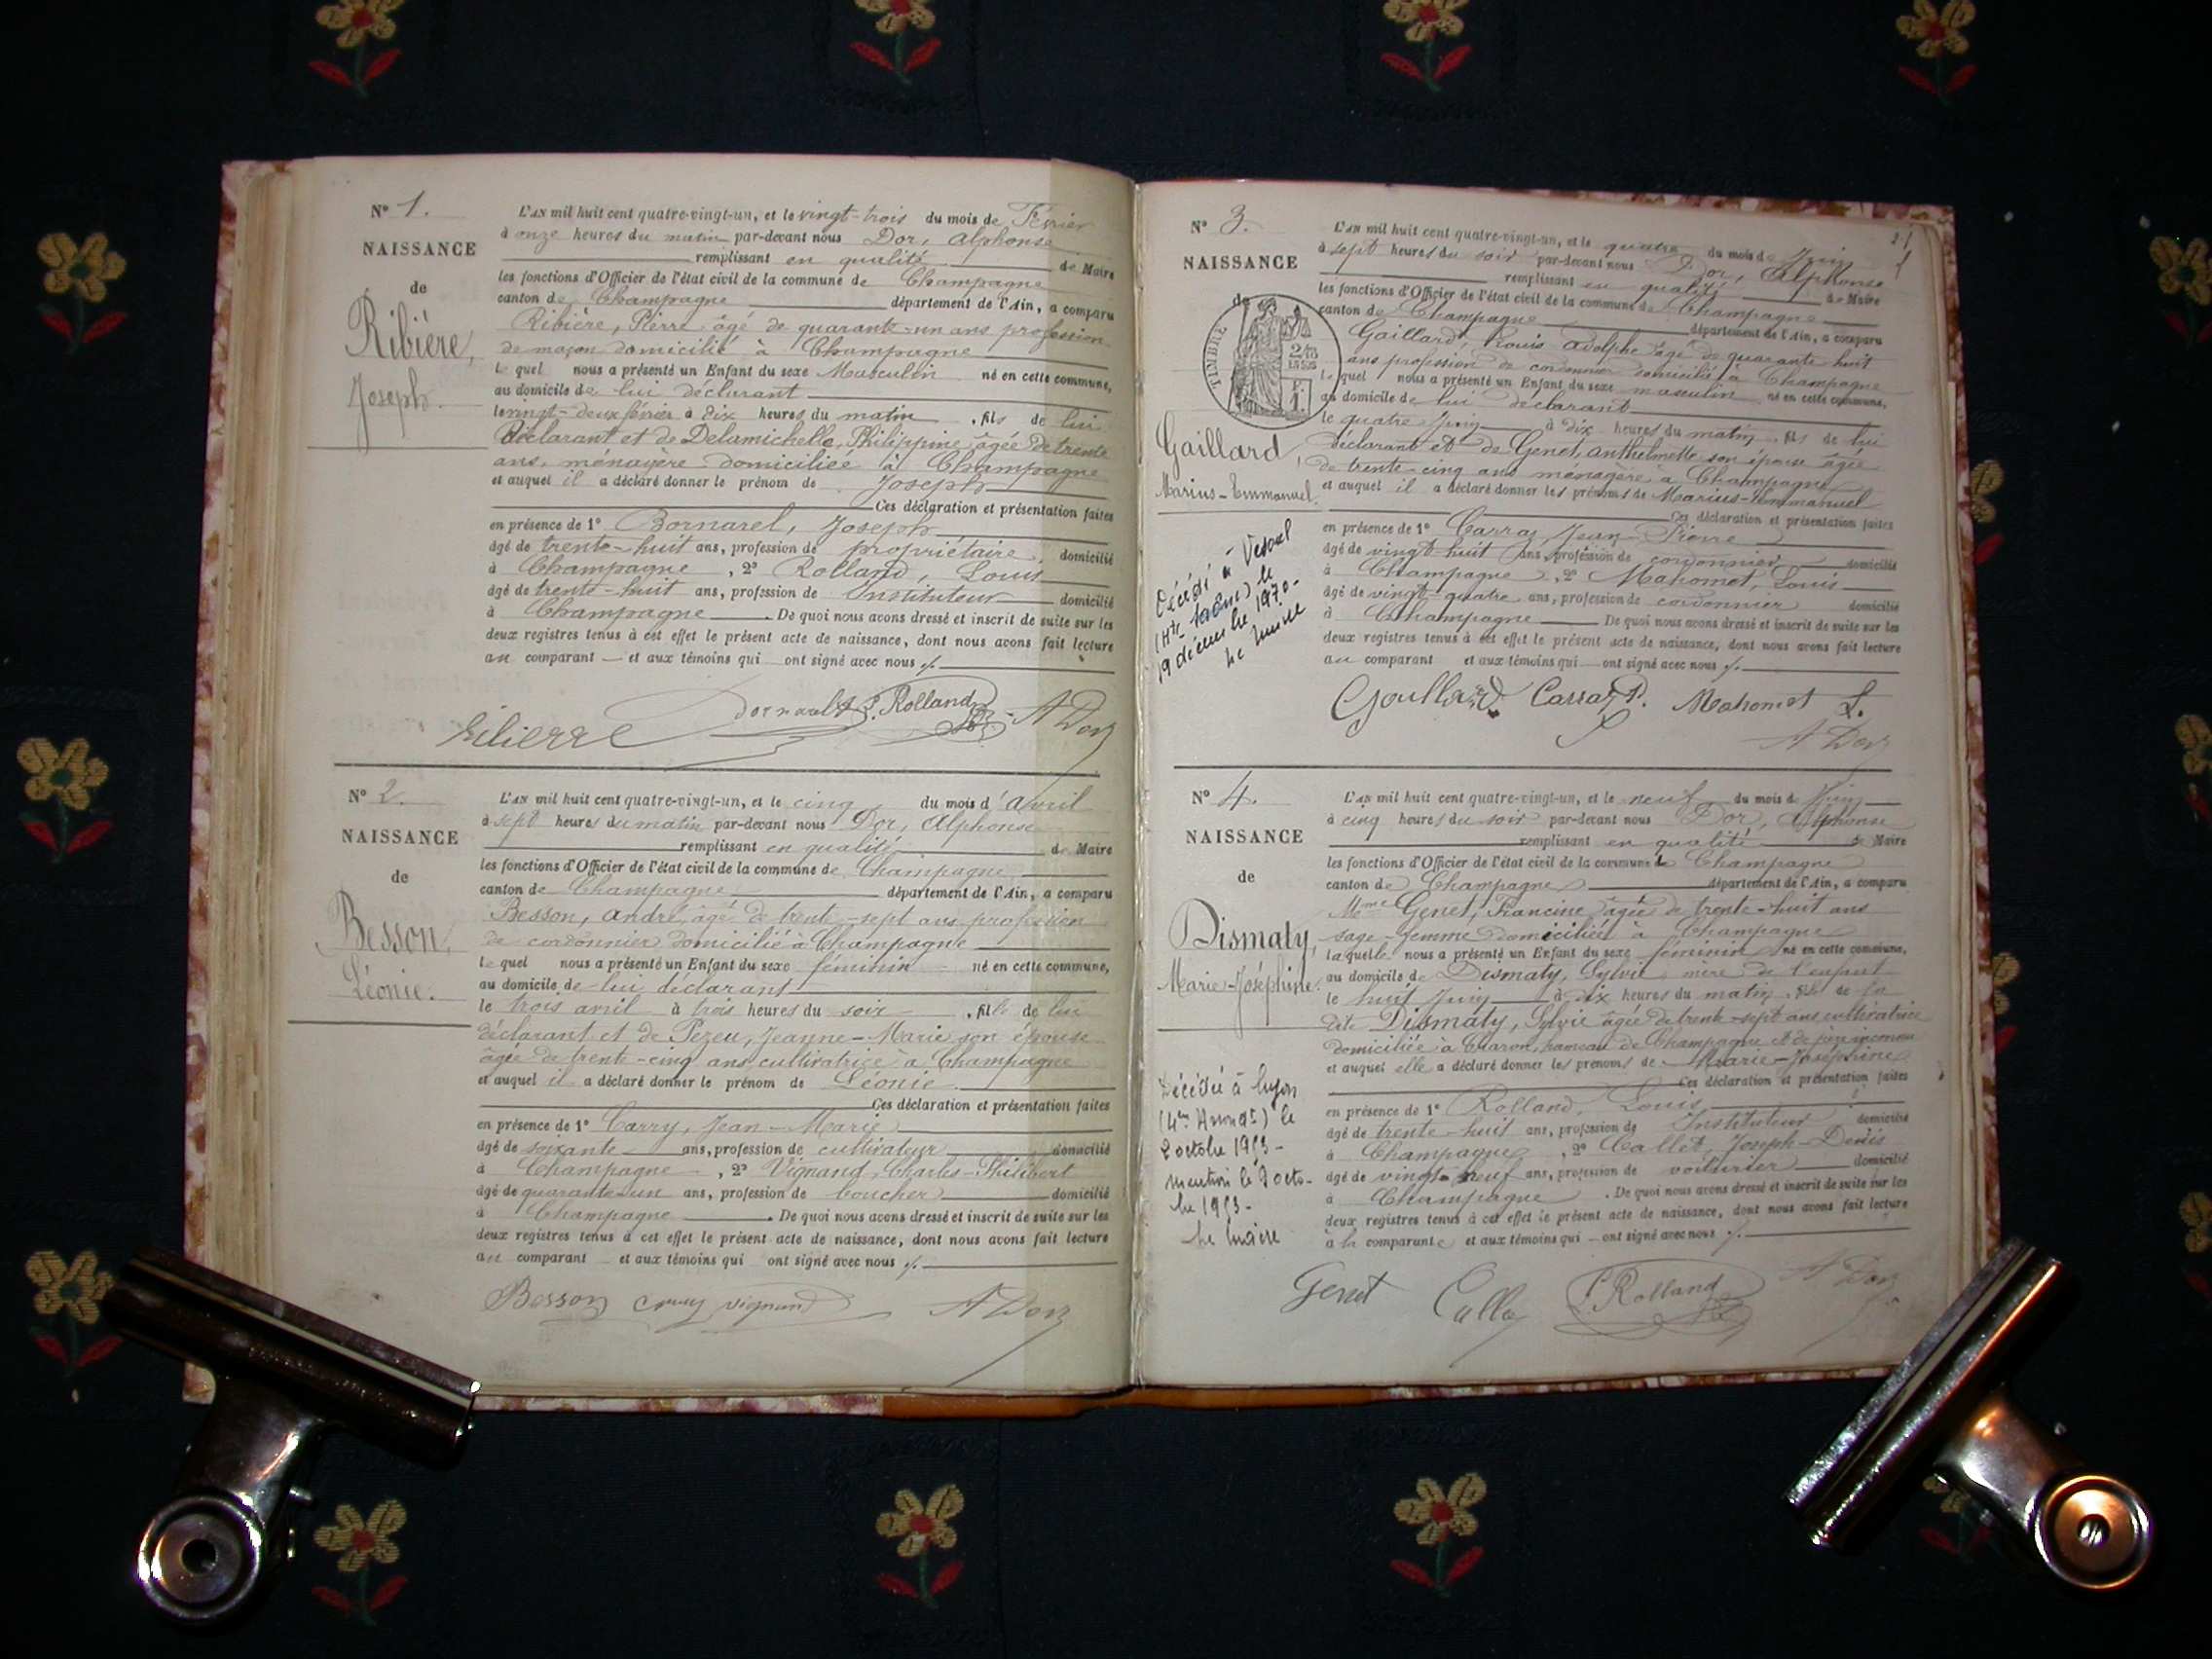 N° 1.
NAISSANCE
de
Ribière,
Joseph.
L'AN mil huit cent quatre-vingt-un, et le vingt-trois du mois de Février
à onze heures du matin par-devant nous Dor, Alphonse
remplissant en qualité de Maire
les fonctions d'Officier de l'état civil de la commune de Champagne
canton de Champagne département de l'Ain, a comparu
Ribière, Pierre âgé de quarante-un ans profession
de maçon domicilié à Champagne
lequel nous a présenté un Enfant du sexe Masculin né en cette commune,
au domicile de lui déclarant
le vingt-deux février à dix heures du matin, fils de lui
déclarant et de Delamichelle, Philippine âgée de trente
ans, ménagère domiciliée à Champagne
et auquel il a déclaré donner le prénom de Joseph
Ces déclaration et présentation faites
en présence de 1° Bornarel, Joseph
âgé de trente-huit ans, profession de propriétaire, domicilié
à Champagne, 2° Rolland, Louis
âgé de trente-huit ans, profession de Instituteur domicilié
à Champagne. De quoi nous avons dressé et inscrit de suite sur les
deux registres tenus à cet effet le présent acte de naissance, dont nous avons fait lecture
au comparant et aux témoins qui ont signé avec nous ./.
L. Rolland A Dor
N° 2.
NAISSANCE
de
Besson,
Léonie.
L'AN mil huit cent quatre-vingt-un, et le cinq du mois d'avril
à sept heures du matin par-devant nous Dor, Alphonse
remplissant en qualité de Maire
les fonctions d'Officier de l'état civil de la commune de Champagne
canton de Champagne département de l'Ain, a comparu
Besson, André, âgé de trente-sept ans profession
de cordonnier domicilié à Champagne
lequel nous a présenté un Enfant du sexe féminin né en cette commune,
au domicile de lui déclarant
le trois avril à trois heures du soir, fille de lui
déclarant et de Pezeu, Jeanne-Marie son épouse
âgée de trente-cinq ans cultivatrice à Champagne
et auquel il a déclaré donner le prénom de Léonie
Ces déclaration et présentation faites
en présence de 1° Carry, Jean-Marie
âgé de soixante ans, profession de cultivateur domicilié
à Champagne, 2° Vignand, Charles-Philibert
âgé de quarante-un ans, profession de boucher domicilié
à Champagne. De quoi nous avons dressé et inscrit de suite sur les
deux registres tenus à cet effet le présent acte de naissance, dont nous avons fait lecture
au comparant et aux témoins qui ont signé avec nous ./.
Besson Carry Vignand A Dor
N° 3.
NAISSANCE
de
TIMBRE
Gaillard,
Marius-Emmanuel.
Décédé à Vesoul
(Hte Saône) le
19 décembre 1970-
Le Maire
L'AN mil huit cent quatre-vingt-un, et le quatre du mois de Juin
à sept heures du soir par-devant nous Dor, Alphonse
remplissant en qualité de Maire
les fonctions d'Officier de l'état civil de la commune de Champagne
canton de Champagne département de l'Ain, a comparu
Gaillard, Louis adolphe âgé de quarante huit
ans profession de cordonnier domicilié à Champagne
lequel nous a présenté un Enfant du sexe masculin né en cette commune,
au domicile de lui déclarant
le quatre Juin à dix heures du matin, fils de lui
déclarant et de Genet, anthelmette son épouse âgée
de trente-cinq ans ménagère à Champagne
et auquel il a déclaré donner les prénoms de Marius-Emmanuel
Ces déclaration et présentation faites
en présence de 1° Carraz, Jean-Pierre
âgé de vingt-huit ans, profession de cordonnier domicilié
à Champagne, 2° Mahomet, Louis
âgé de vingt-quatre ans, profession de cordonnier domicilié
à Champagne De quoi nous avons dressé et inscrit de suite sur les
deux registres tenus à cet effet le présent acte de naissance, dont nous avons fait lecture
au comparant et aux témoins qui ont signé avec nous ./.
Gaillard Carraz P. Mahomet L.
A Dor
N° 4.
NAISSANCE
de
Dismaty,
Marie-Joséphine.
Décédée à Lyon
(4me Arrondt) le
2 octobre 1953-
mention le 9 octo-
bre 1953-
Le Maire
L'AN mil huit cent quatre-vingt-un, et le neuf du mois de Juin
à cinq heures du soir par-devant nous Dor, Alphonse
remplissant en qualité de Maire
les fonctions d'Officier de l'état civil de la commune de Champagne
canton de Champagne département de l'Ain, a comparu
Mme Genet, Francine âgée de trente-huit ans
sage-femme domiciliée à Champagne
laquelle nous a présenté un Enfant du sexe féminin né en cette commune,
au domicile de Dismaty, Sylvie mère de l'enfant
le huit Juin à dix heures du matin, fille de la
dite Dismaty, Sylvie âgée de trente-sept ans cultivatrice
domiciliée à Charon, hameau de Champagne et de père inconnu
et auquel elle a déclaré donner les prénoms de Marie-Joséphine
Ces déclaration et présentation faites
en présence de 1° Rolland, Louis
âgé de trente-huit ans, profession de Instituteur domicilié
à Champagne, 2° Callet, Joseph-Denis
âgé de vingt-neuf ans, profession de voiturier domicilié
à Champagne. De quoi nous avons dressé et inscrit de suite sur les
deux registres tenus à cet effet le présent acte de naissance, dont nous avons fait lecture
à la comparante et aux témoins qui ont signé avec nous ./.
Genet L. Rolland A Dor